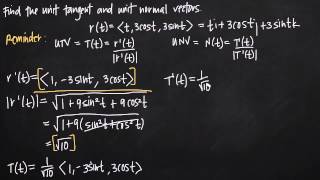 Find the unit tangent and unit normal vectors.
r(t) = <t, 3cost, 3sint> = ti + 3costj + 3sintk
Reminder: UTV = T(t) = r'(t) / |r'(t)| UNV = N(t) = T'(t) / |T'(t)|
r'(t) = <1, -3sint, 3cost> T'(t) = 1/√10
|r'(t)| = √1 + 9sin²t + 9cos²t
= √1 + 9(sin²t + cos²t)
= √10
T(t) = 1/√10 <1, -3sint, 3cost>